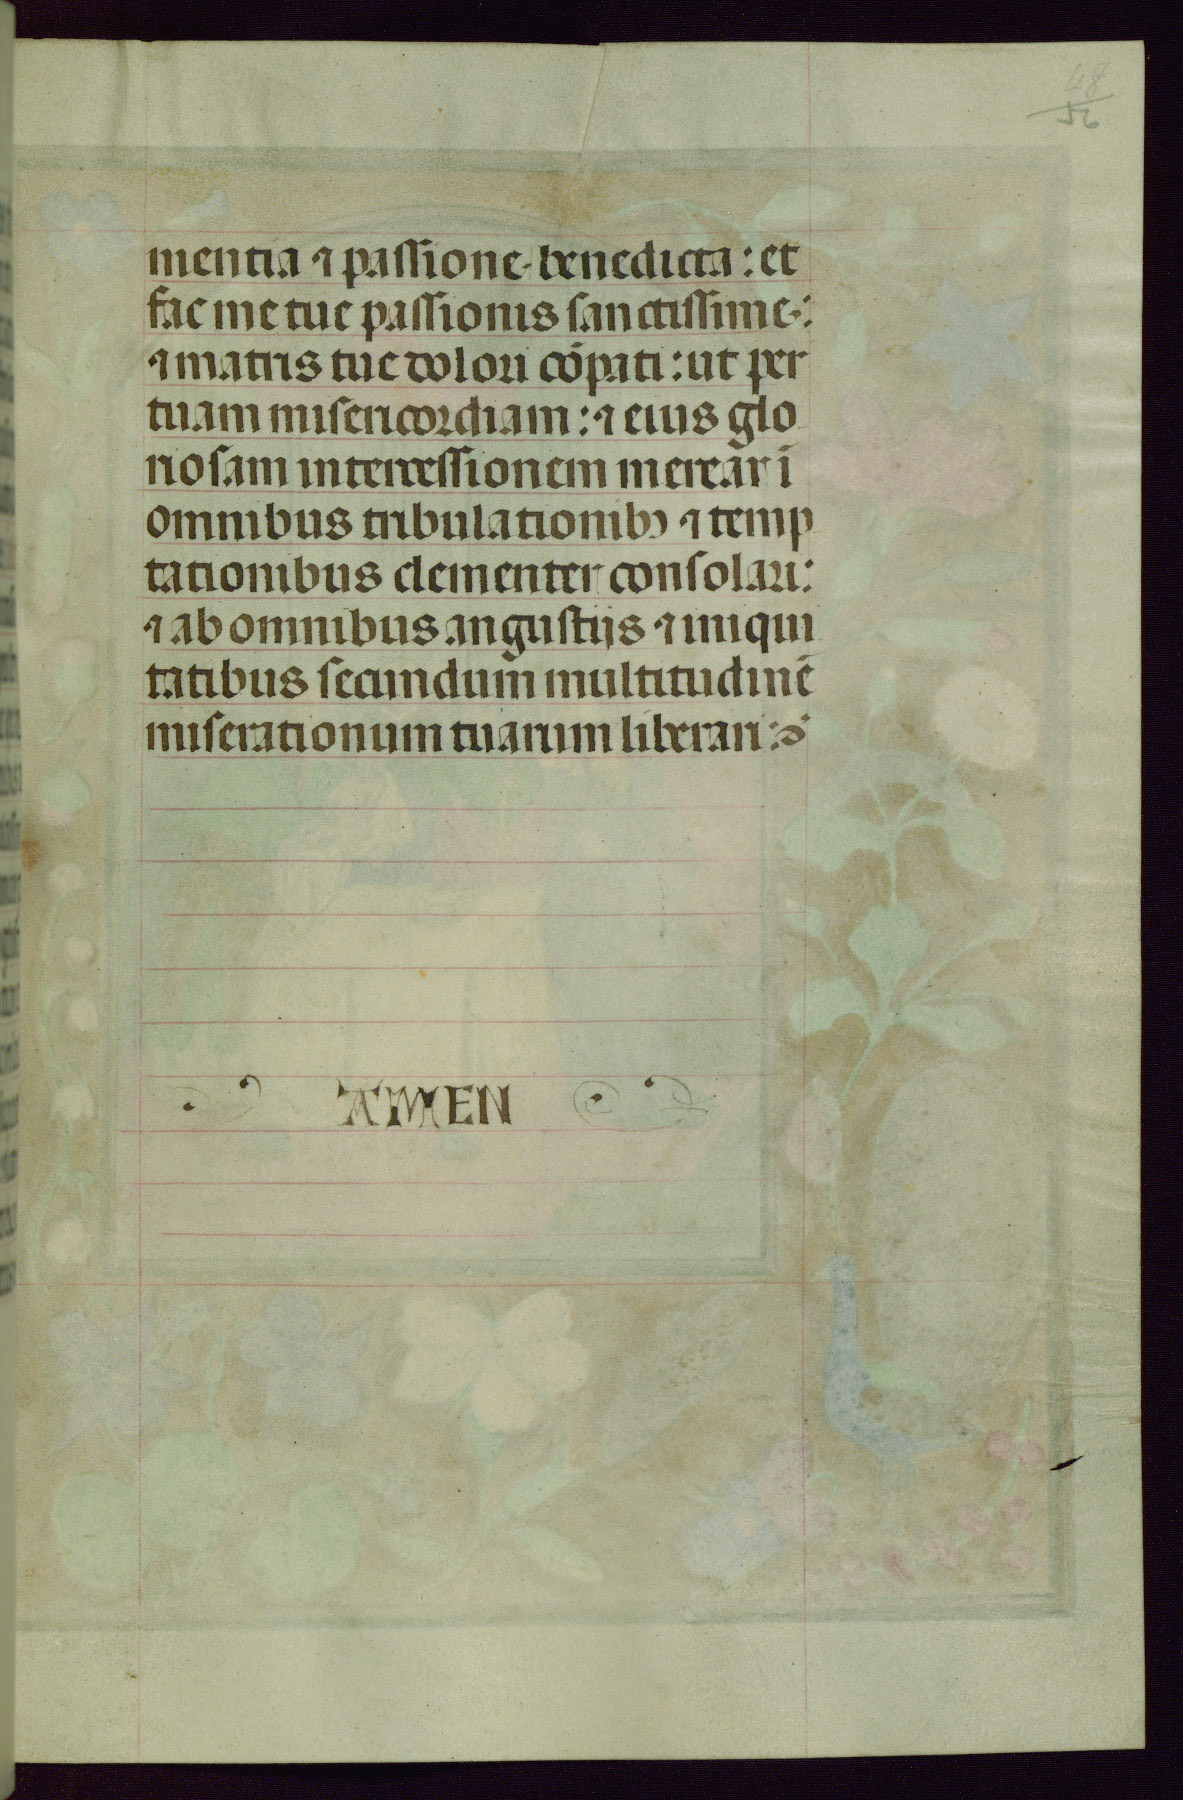 48
56
mentia ⁊ passione benedicta: et
fac me tue passionis sanctissime:
⁊ matris tue dolori cōpati: ut per
tuam misericordiam: ⁊ eius glo
riosam intercessionem merear ī
omnibus tribulationibꝰ ⁊ temp
tationibus clementer consolari:
⁊ ab omnibus angustijs ⁊ iniqui
tatibus secundum multitudinē
miserationum tuarum liberari:
AMEN